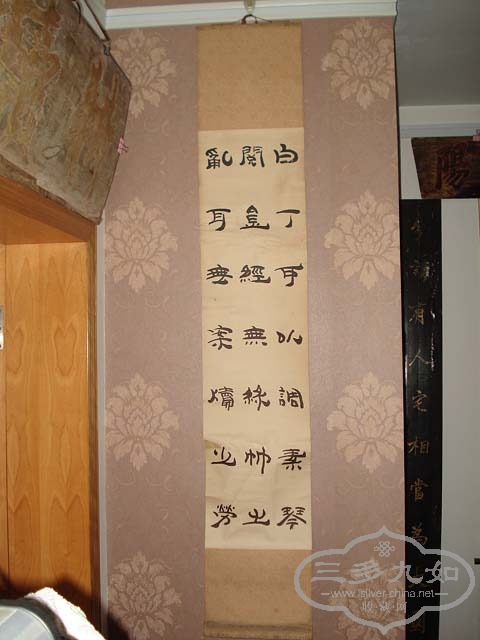 白丁可以調素琴
閱金經無絲竹之
亂耳無案牘之勞
陽
有人宅相當為
三多九如
www.silver-china.net